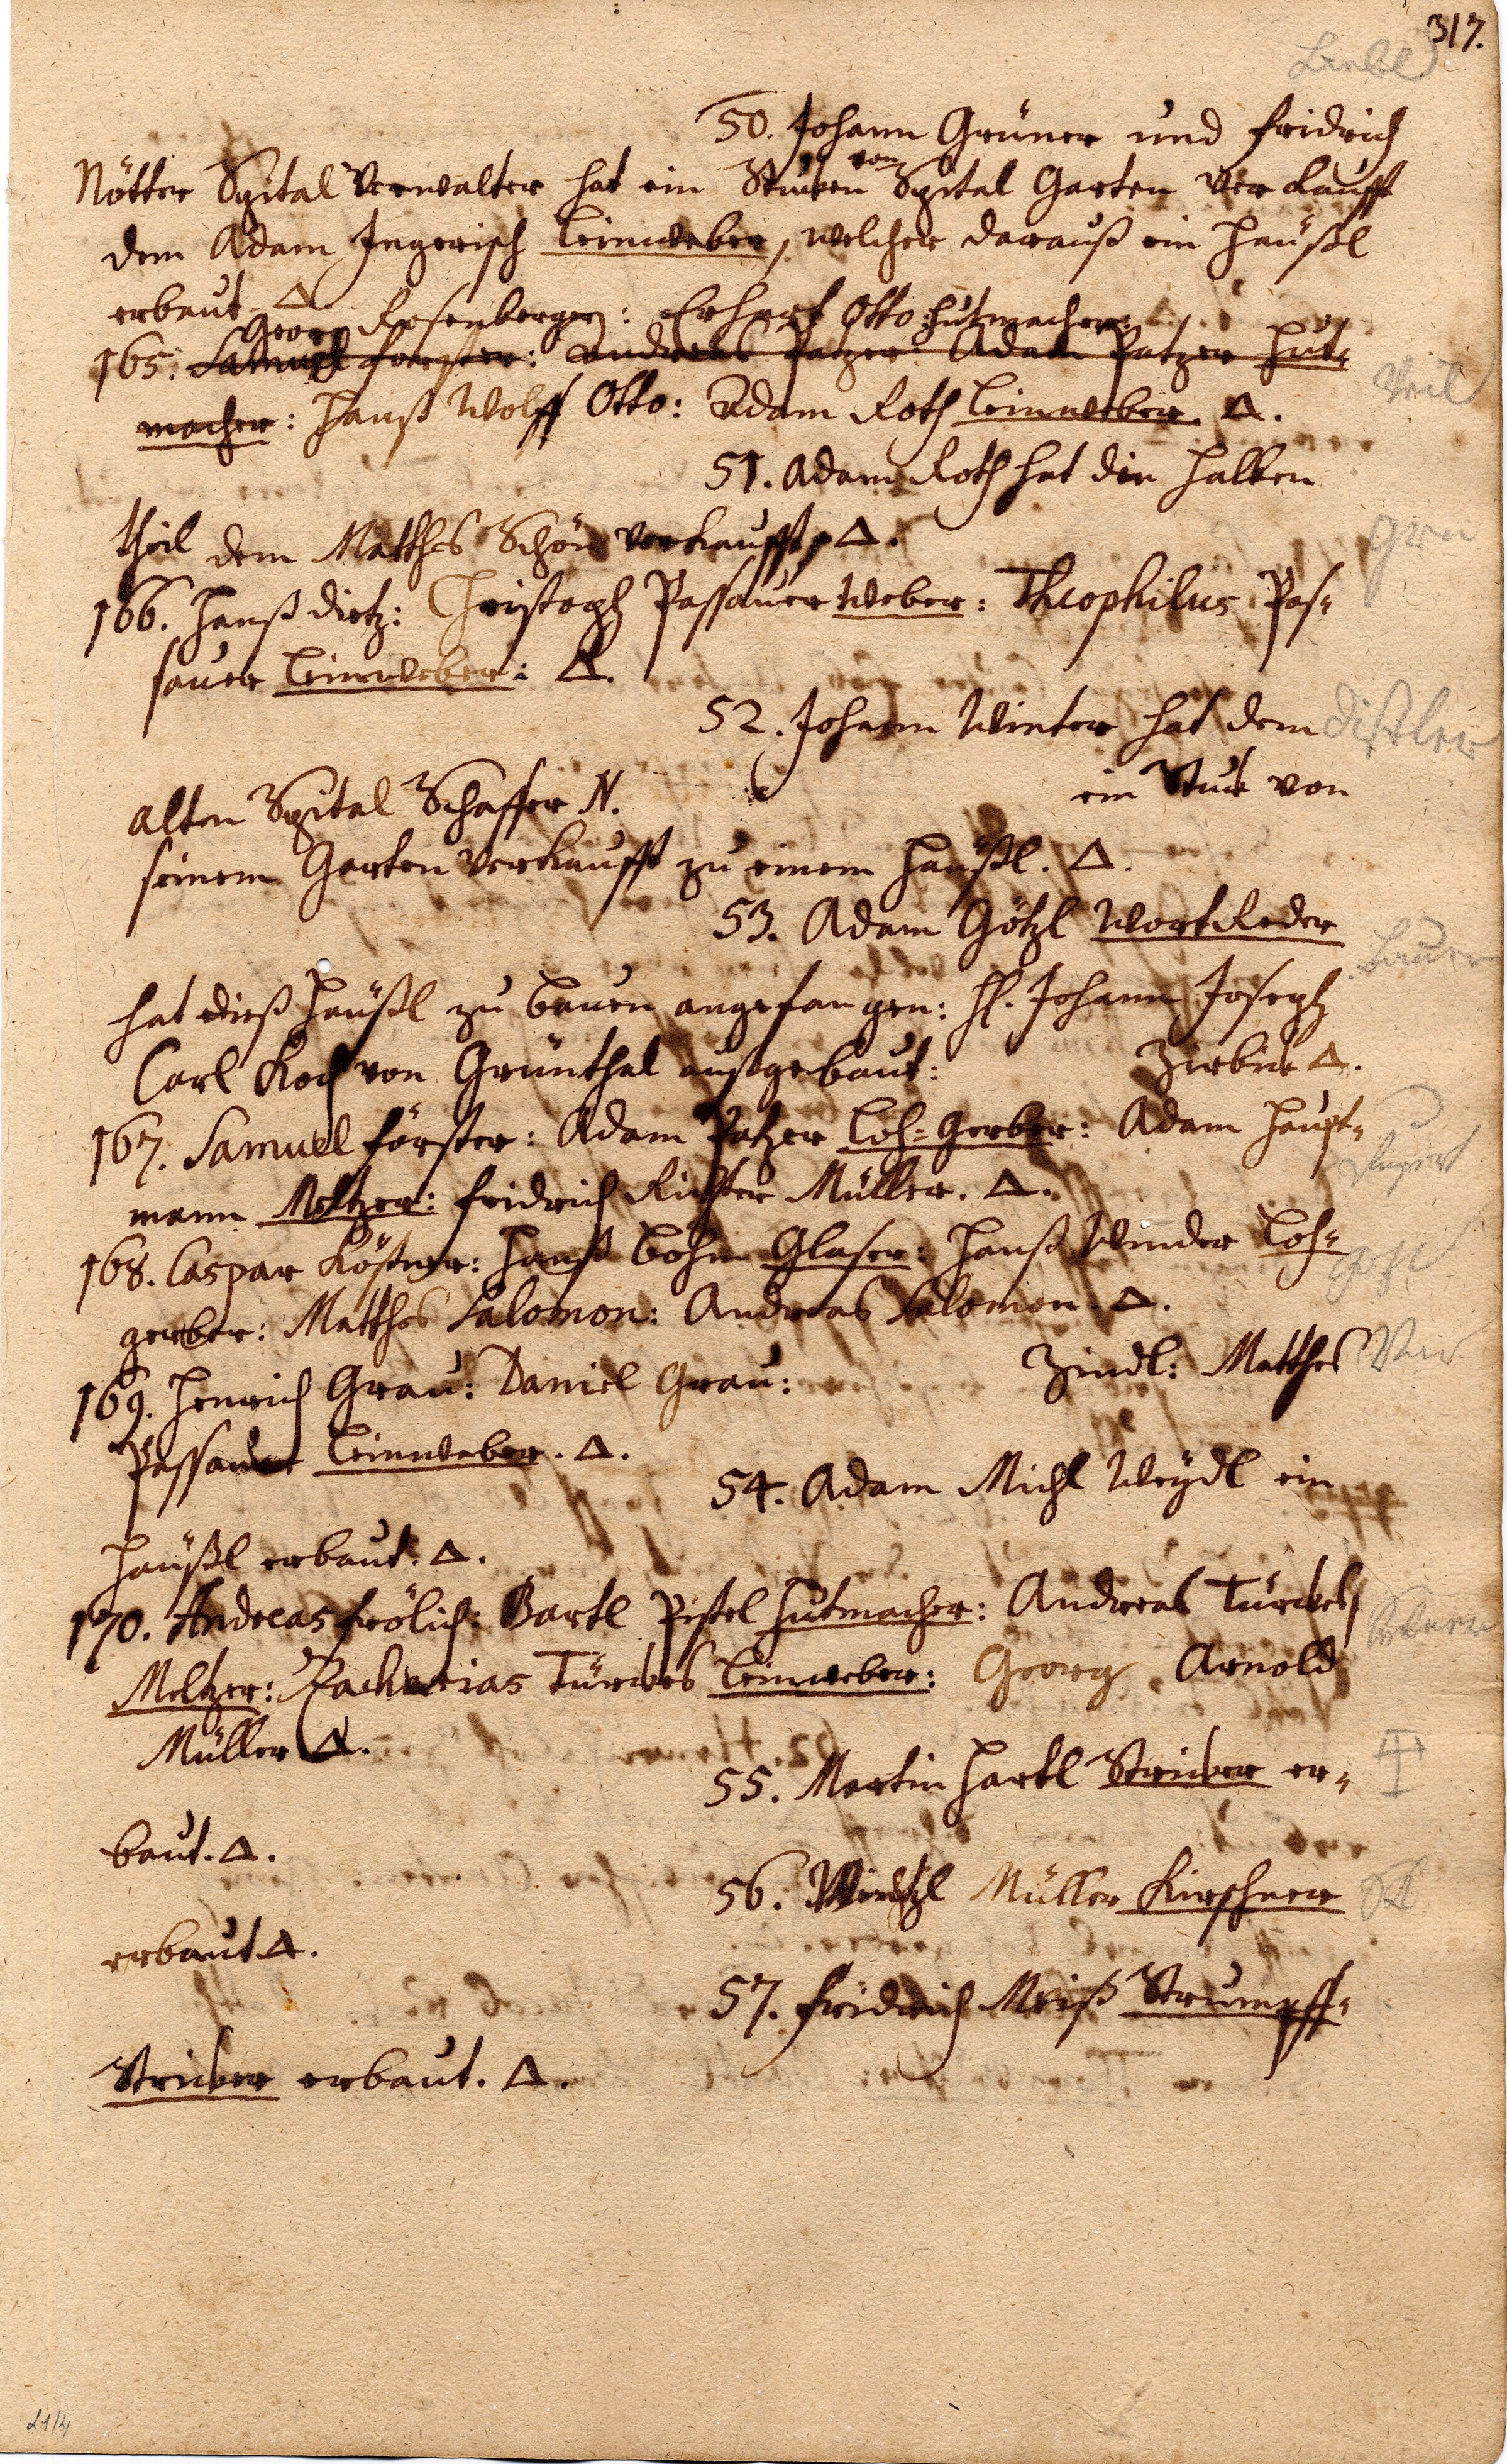 317.
50. Johann Grüner und Fridrich
Nötter Spital Verwalter hat ein Stuken vom Spital Garten verkaufft
dem Adam Ingerisch Leinweber, welcher darauß ein Häußl
erbaut. Δ
Georg Rosenberger: Erhart Otto Hutmacher:
165. Samuel Forster: Andreas Patzer: Adam Patzer Hut-
macher: Hanß Wolff Otto: Adam Roth Leinweber. Δ.
Veil
51. Adam Roth hat den halben
theil dem Matthes Schön verkaufft, Δ.
166. Hanß Dietz: Christoph Passauer Weber: Theophilus Pas-
sauer Leinweber: Δ.
52. Johann Winter hat dem
Distler
alten Spital Schaffer N. ein Stuk von
seinem Garten verkaufft zu einem Häußl. Δ.
53. Adam Götzl Vorreder
hat dieß Häußl zu bauen angefangen: H. Johann Joseph
Carl Koch von Grünthal außgebaut: Zirbik Δ.
167. Samuel Förster: Adam Patzer Loh-Gerber: Adam Haupt-
mann Meltzer: Fridrich Richter Müller. Δ.
168. Caspar Kößner: Hanß Böhm Glaser: Hanß Winder Loh-
gerber: Matthes Salomon: Andreas Salomon. Δ.
169. Henrich Grau: Daniel Grau: Zindl: Matthes
Passauer Leinweber. Δ.
54. Adam Michl Weydl ein
Häußl erbaut. Δ.
170. Andreas Frölich: Bartl Pistel Hutmacher: Andreas Türbes
Meltzer: Zacharias Türbes Leinweber: Georg Arnold
Müller Δ.
55. Martin Hartl Striker er-
baut. Δ.
56. Wentzl Müller Kirschner
erbaut Δ.
57. Fridrich Meiß Strumpff-
Striker erbaut. Δ.